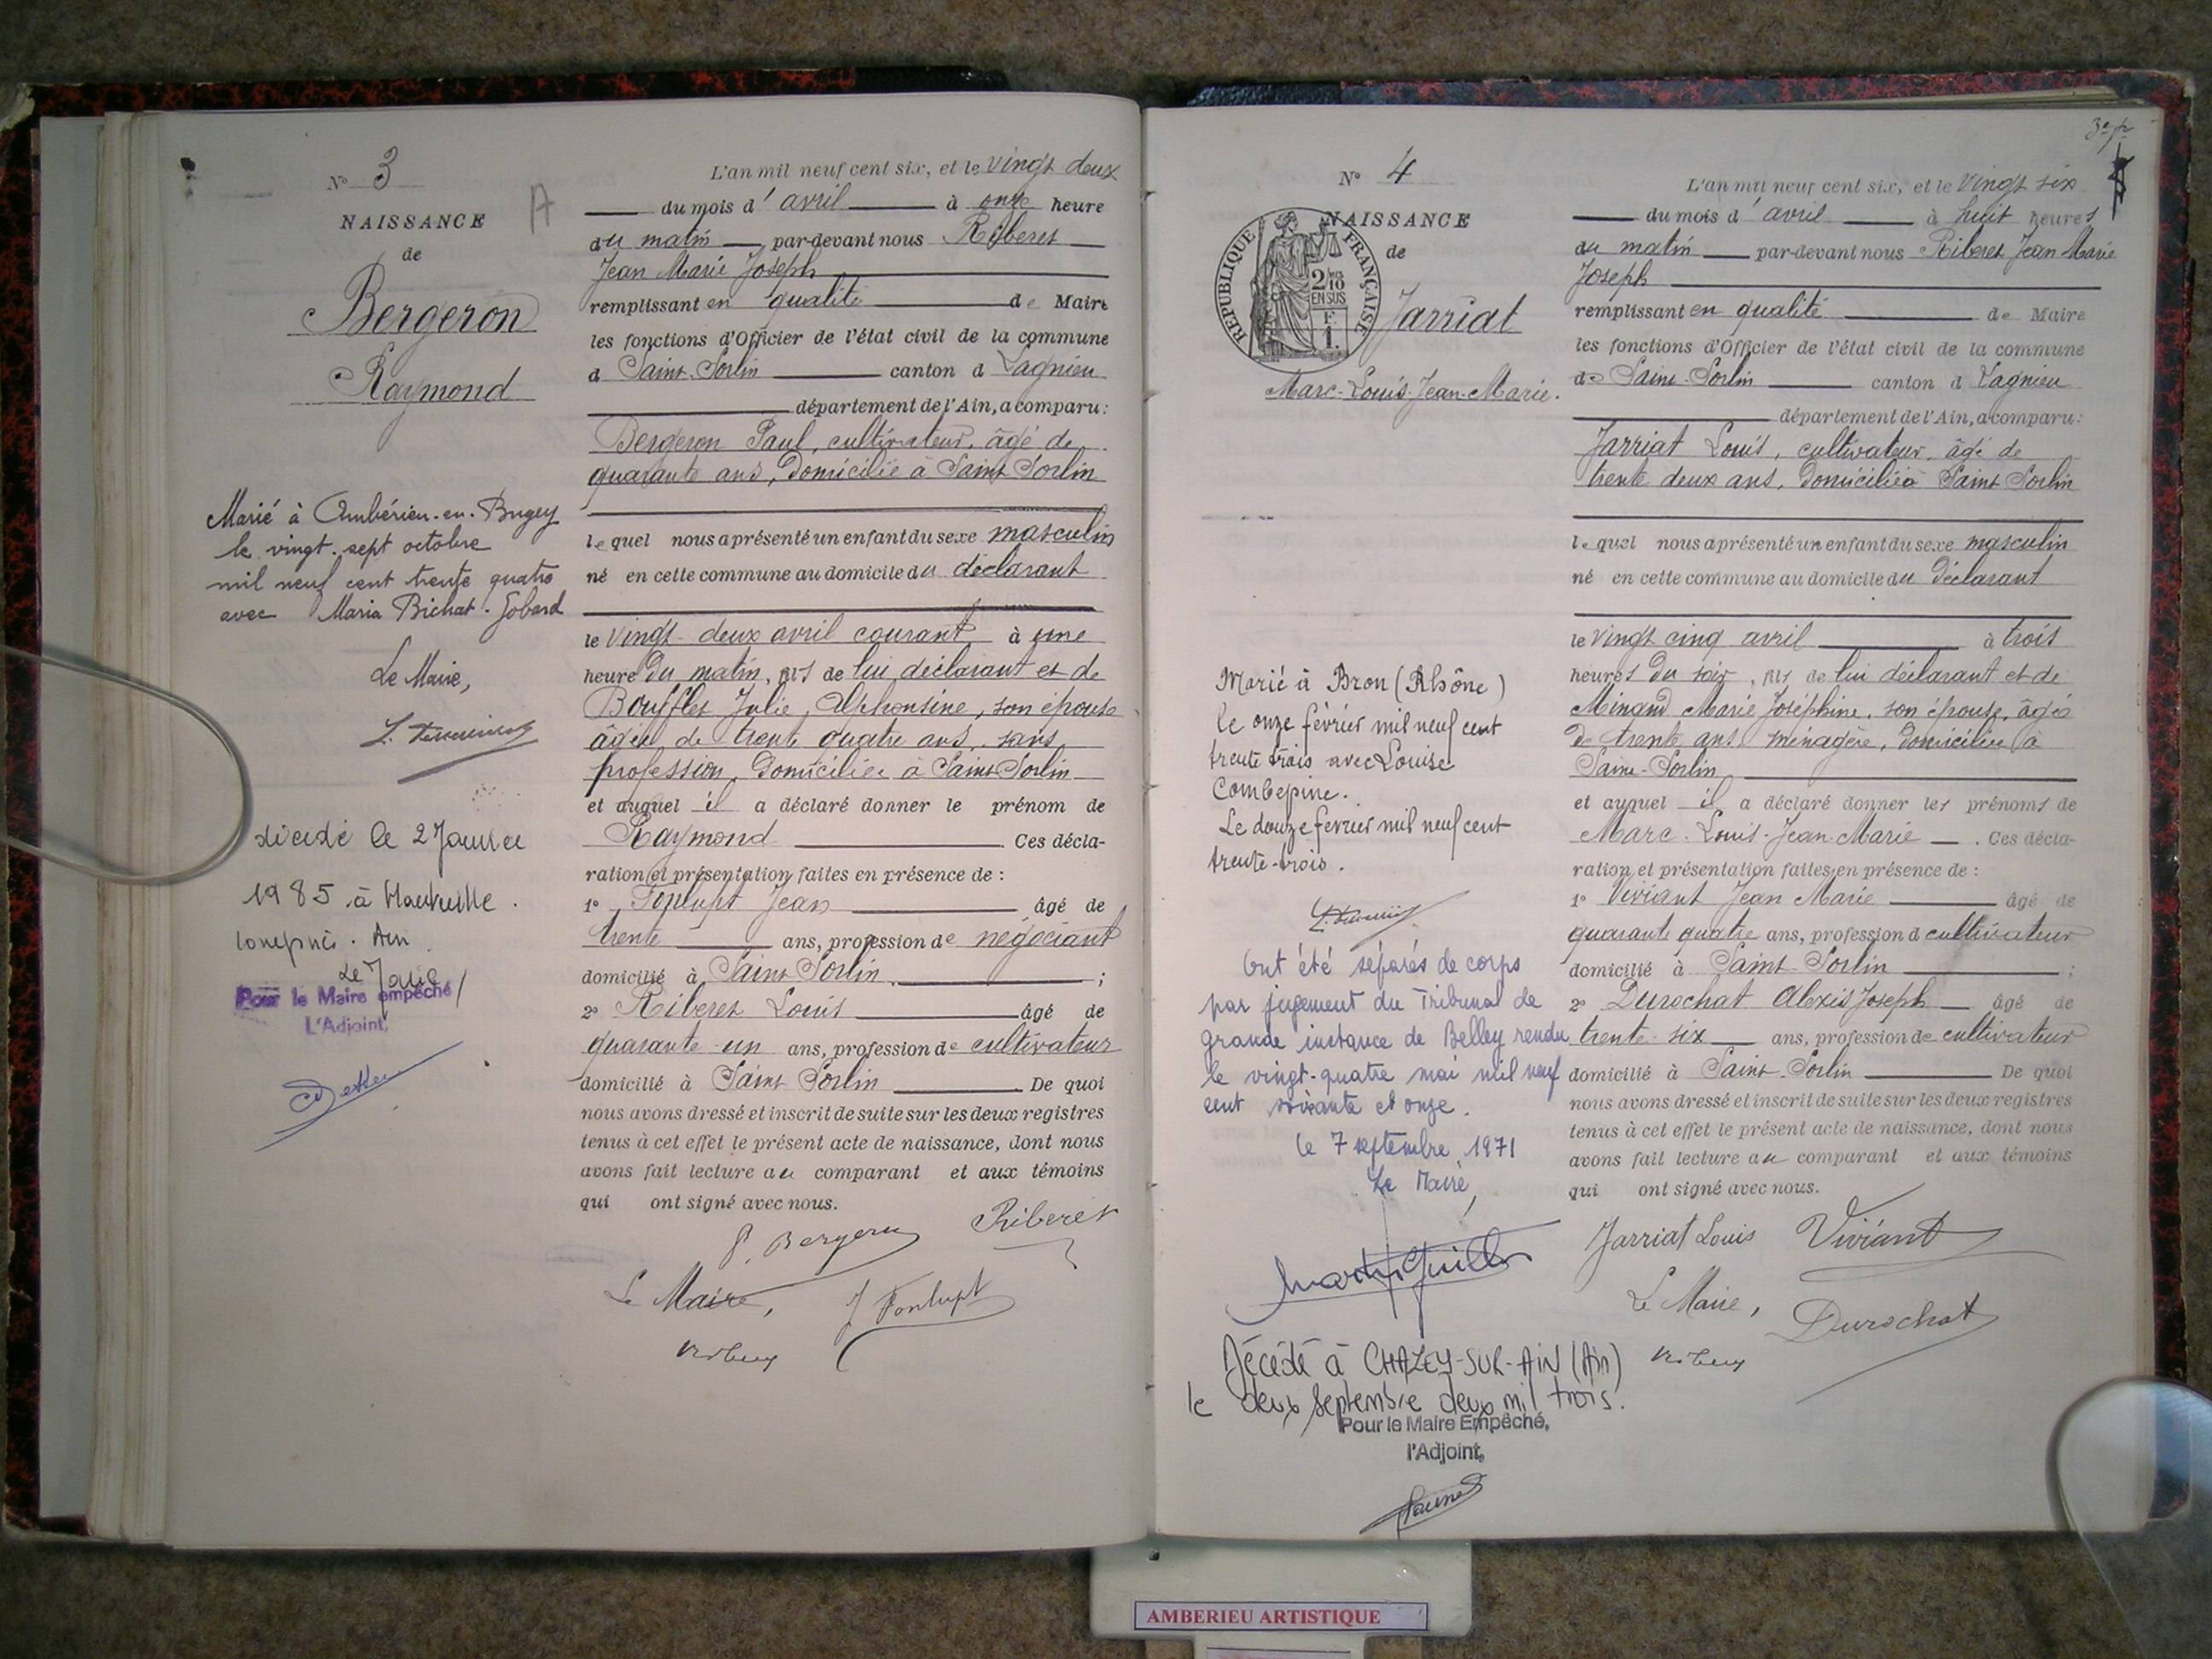 N° 3
NAISSANCE
de
Bergeron
Raymond
A
Marié à Ambérieu-en-Bugey
le vingt-sept octobre
mil neuf cent trente quatre
avec Maria Bichat-Gobard
Le Maire,
décédé le 2 Janvier
1985 à Hauteville
Lompnes. Ain
Le Maire
Pour le Maire empêché
L'Adjoint,
L'an mil neuf cent six, et le vingt deux
du mois d'avril à onze heure
du matin par-devant nous Riberet
Jean Marie Joseph
remplissant en qualité de Maire
les fonctions d'Officier de l'état civil de la commune
d Saint-Sorlin canton d Lagnieu
département de l'Ain, a comparu:
Bergeron Paul, cultivateur, âgé de
quarante ans, domicilié à Saint Sorlin
lequel nous a présenté un enfant du sexe masculin
né en cette commune au domicile du déclarant
le vingt-deux avril courant à une
heure du matin, fils de lui déclarant et de
Bouffler Julie, Alphonsine, son épouse
âgée de trente quatre ans, sans
profession, domiciliée à Saint-Sorlin
et auquel il a déclaré donner le prénom de
Raymond. Ces décla-
ration et présentation faites en présence de :
1° Fonlupt Jean âgé de
trente ans, profession de négociant
domicilié à Saint Sorlin ;
2° Riberet Louis âgé de
quarante-un ans, profession de cultivateur
domicilié à Saint Sorlin De quoi
nous avons dressé et inscrit de suite sur les deux registres
tenus à cet effet le présent acte de naissance, dont nous
avons fait lecture au comparant et aux témoins
qui ont signé avec nous.
P. Bergeron Riberet
Le Maire, J Fonlupt
3e f
N° 4
NAISSANCE
de
REPUBLIQUE FRANÇAISE
2/10
EN SUS
F.
1.
Jarriat
Marc-Louis-Jean-Marie.
Marié à Bron (Rhône)
le onze février mil neuf cent
trente trois avec Louise
Combepine.
Le douze février mil neuf cent
trente-trois.
Ont été séparés de corps
par jugement du Tribunal de
grande instance de Belley rendu
le vingt-quatre mai mil neuf
cent soixante et onze.
le 7 septembre 1971
Le Maire,
Décédé à CHAZEY-SUR-AIN (Ain)
le deux septembre deux mil trois.
Pour le Maire Empêché,
l'Adjoint,
L'an mil neuf cent six, et le vingt six
du mois d'avril à huit heures
du matin par-devant nous Riberet Jean Marie
Joseph
remplissant en qualité de Maire
les fonctions d'Officier de l'état civil de la commune
de Saint-Sorlin canton d Lagnieu
département de l'Ain, a comparu:
Jarriat Louis, cultivateur, âgé de
trente deux ans, domicilié à Saint Sorlin
lequel nous a présenté un enfant du sexe masculin
né en cette commune au domicile du déclarant
le vingt cinq avril à trois
heures du soir, fils de lui déclarant et de
Minand Marie Joséphine, son épouse, âgée
de trente ans, ménagère, domiciliée à
Saint-Sorlin
et auquel il a déclaré donner les prénoms de
Marc-Louis-Jean-Marie. Ces décla-
ration et présentation faites en présence de :
1° Viviant Jean Marie âgé de
quarante quatre ans, profession d cultivateur
domicilié à Saint-Sorlin ;
2° Durochat Alexis Joseph âgé de
trente-six ans, profession de cultivateur
domicilié à Saint-Sorlin De quoi
nous avons dressé et inscrit de suite sur les deux registres
tenus à cet effet le présent acte de naissance, dont nous
avons fait lecture au comparant et aux témoins
qui ont signé avec nous.
Jarriat Louis Viviant
Le Maire, Durochat
AMBERIEU ARTISTIQUE